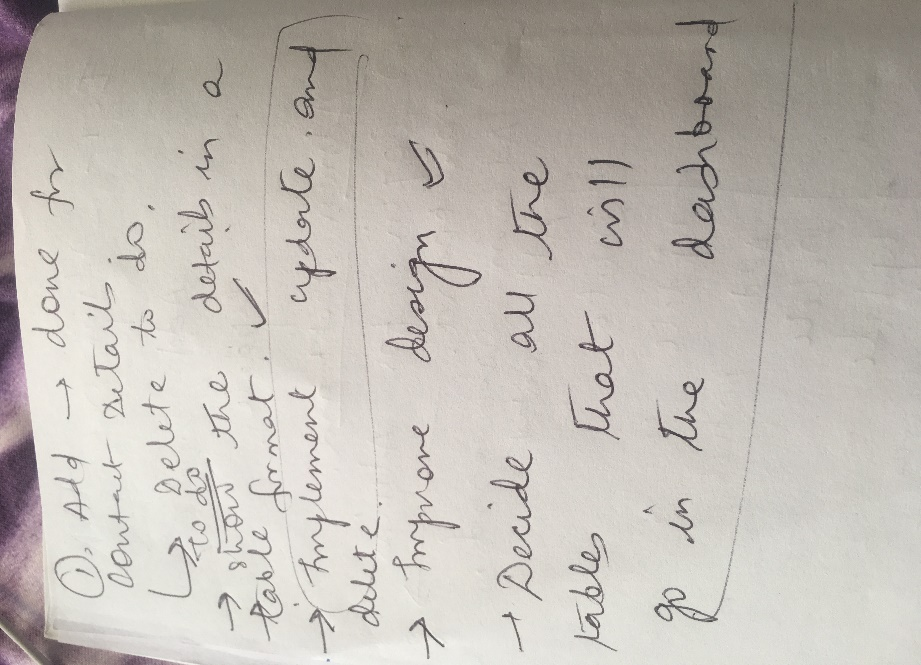 ① Add → done for
contact Details
↳ Delete to do.
to do
→ show the details in a
table format. ✓
→ Implement update and
delete.
→ Improve design ✓
→ Decide all the
tables that will
go in the dashboard